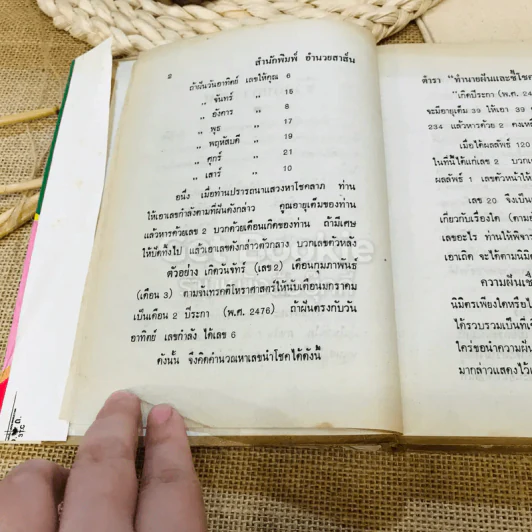 ๒ สำนักพิมพ์ อำนวยสาส์น
ถ้าฝันวันอาทิตย์ เลขให้คุณ 6
„ จันทร์ „ 15
„ อังคาร „ 8
„ พุธ „ 17
„ พฤหัสบดี „ 19
„ ศุกร์ „ 21
„ เสาร์ „ 10
อนึ่ง เมื่อท่านปรารถนาแสวงหาโชคลาภ ท่าน
ให้เอาเลขกำลังตามที่ฝันดังกล่าว คูณอายุเต็มของท่าน
แล้วหารด้วยเลข 2 บวกด้วยเดือนเกิดของท่าน ถ้ามีเศษ
ให้ปัดทิ้งไป แล้วเอาเลขดังกล่าวตัวกลาง บวกเลขตัวหลัง
ตัวอย่าง เกิดวันจันทร์ (เลข 2) เดือนกุมภาพันธ์
(เดือน 3) ตามจันทรคติโหราศาสตร์ให้นับเดือนมกราคม
เป็นเดือน 2 ปีระกา (พ.ศ. 2476) ถ้าฝันตรงกับวัน
อาทิตย์ เลขกำลัง ได้เลข 6
ดังนั้น จึงคิดคำนวณหาเลขนำโชคได้ดังนี้
ตำรา "ทำนายฝันและชี้โชค
"เกิดปีระกา (พ.ศ. 24
จะมีอายุเต็ม 39 ให้เอา 39
234 แล้วหารด้วย 2 คงเหลื
เมื่อได้ผลลัพธ์ 120
ในที่นี้ได้แก่เลข 2 บวกเ
ผลลัพธ์ 1 เลขตัวหน้าให้
เลข 20 จึงเป็น
เกี่ยวกับเรื่องใด (ตาม
เลขอะไร ท่านให้พิจา
เอาเถิด จะได้ตามนิมิต
ความฝันเชื่
นิมิตรเพียงใดหรือไ
ได้รวบรวมเป็นที่เ
ใคร่ขอนำความฝั
มากล่าวแสดงไว้เ